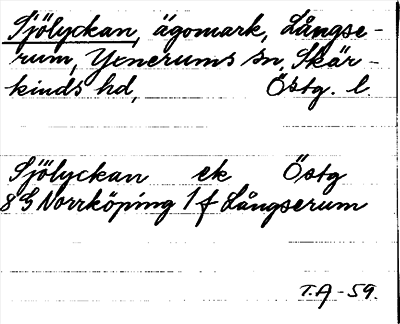 Sjölyckan, ägomark, Långse-
rum, Yxnerums sn, Skär-
kinds hd, Östg. l.
Sjölyckan ek Östg
8 G Norrköping 1 f Långserum
T.A-59.